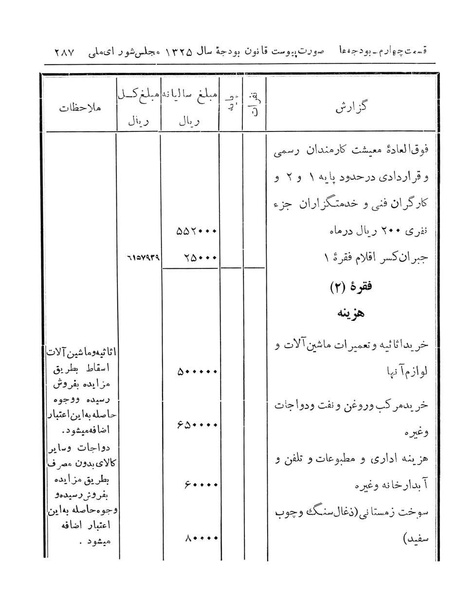 قسمت چهارم ـ بودجه‌ها صورت پیوست قانون بودجهٔ سال ۱۳۲۵ مجلس شورای ملی ۲۸۷
گزارش نفرات پایه مبلغ سالیانه ریال مبلغ کل ریال ملاحظات
فوق‌العادهٔ معیشت کارمندان رسمی
و قراردادی در حدود پایه ۱ و ۲ و
کارگران فنی و خدمتگزاران جزء
نفری ۲۰۰ ریال درماه ۵۵۲۰۰۰
جبران کسر اقلام فقرهٔ ۱ ۲۵۰۰۰ ۶۱۵۷۹۳۹
فقرهٔ (۲)
هزینه
خرید اثاثیه و تعمیرات ماشین آلات و
لوازم آنها ۵۰۰۰۰۰
خرید مرکب و روغن و نفت و دواجات
وغیره ۶۵۰۰۰۰
هزینه اداری و مطبوعات و تلفن و
آبدارخانه وغیره ۶۰۰۰۰
سوخت زمستانی (ذغال سنگ و چوب
سفید) ۸۰۰۰۰
اثاثیه و ماشین آلات
اسقاط بطریق
مزایده بفروش
رسیده و وجوه
حاصله به این اعتبار
اضافه میشود.
دواجات و سایر
کالای بدون مصرف
بطریق مزایده
بفروش رسیده و
وجوه حاصله به این
اعتبار اضافه
میشود.